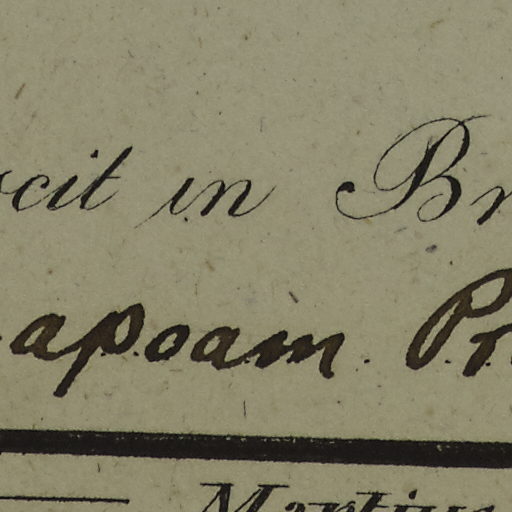 cit in Br
apoam. Pr
Martius